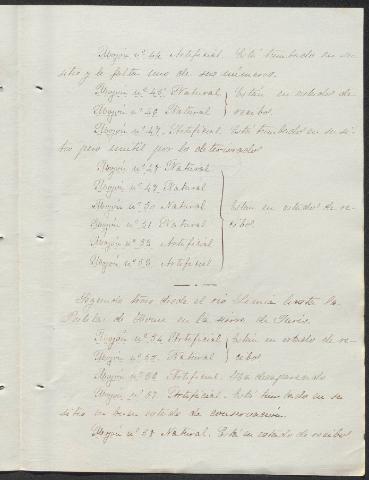 Mojón nº 44 Artificial. Está tumbado en su
sitio y le falta uno de sus números.
Mojón nº 45 Natural } Están en estado de
Mojón nº 46 Natural } recibo.
Mojón nº 47. Artificial. Está tumbado en su si-
tio pero inutil por lo deteriorado
Mojón nº 48 Natural
Mojón nº 49 Natural
Mojón nº 50 Natural } Están en estado de re-
Mojón nº 51 Natural } cibo.
Mojón nº 52 Artificial
Mojón nº 53 Artificial
Segundo trozo desde el rio hasta la
Portela de Home en la sierra de
Mojón nº 54 Artificial } Están en estado de re-
Mojón nº 55. Natural } cibo
Mojón nº 56 Artificial. Ha desaparecido
Mojón nº 57 Artificial. Está tumbado en su
sitio en buen estado de conservación.
Mojón nº 58 Natural. Está en estado de recibo